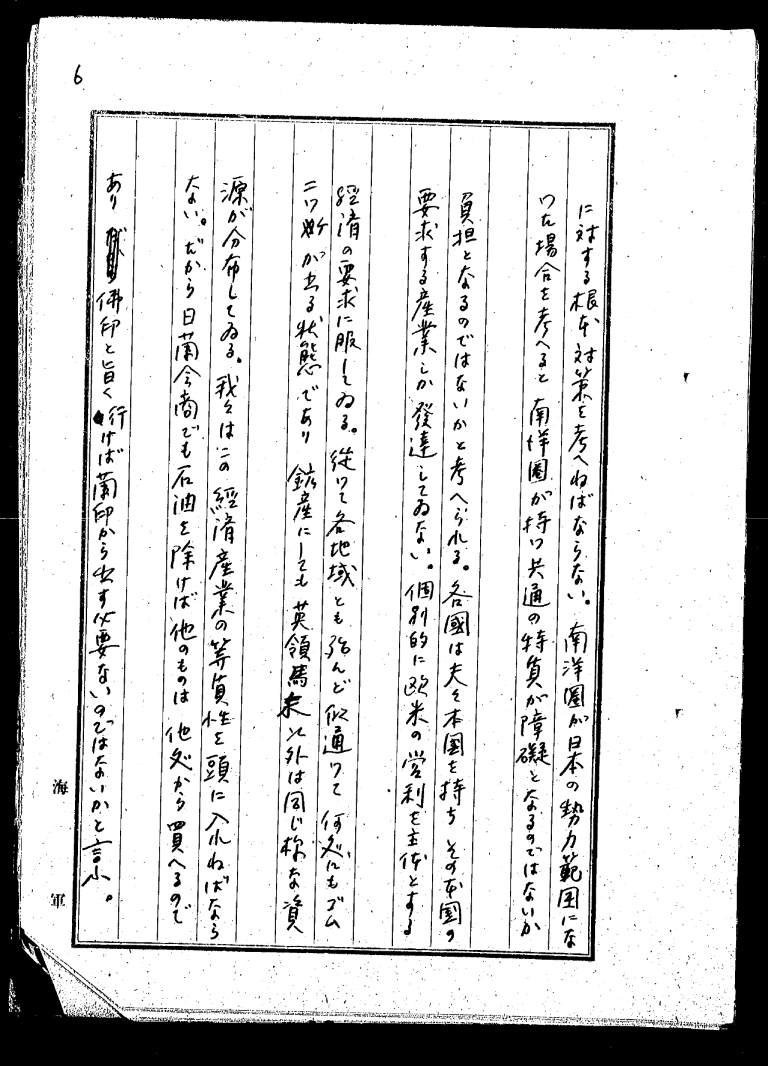 6
に対する根本対策を考へねばならない。南洋圏が日本の勢力範囲にな
つた場合を考へると南洋圏が持つ共通の特質が障礙となるのではないか
負担となるのではないかと考へられる。各國は夫々本國を持ち その本國の
要求する産業しか發達してゐない。個別的に欧米の営利を主体とする
経済の要求に服してゐる。従つて各地域とも殆んど似通つて何処にもゴム
ニツ が出る状態であり 鉱産にしても英領馬来以外は同じ様な資
源が分布してゐる。我々はこの経済産業の等質性を頭に入れねばなら
ない。だから日蘭会商でも石油を除けば他のものは他処から買へるので
あり 佛印と旨く行けば蘭印から出す必要ないのではないかと言ふ。
海軍